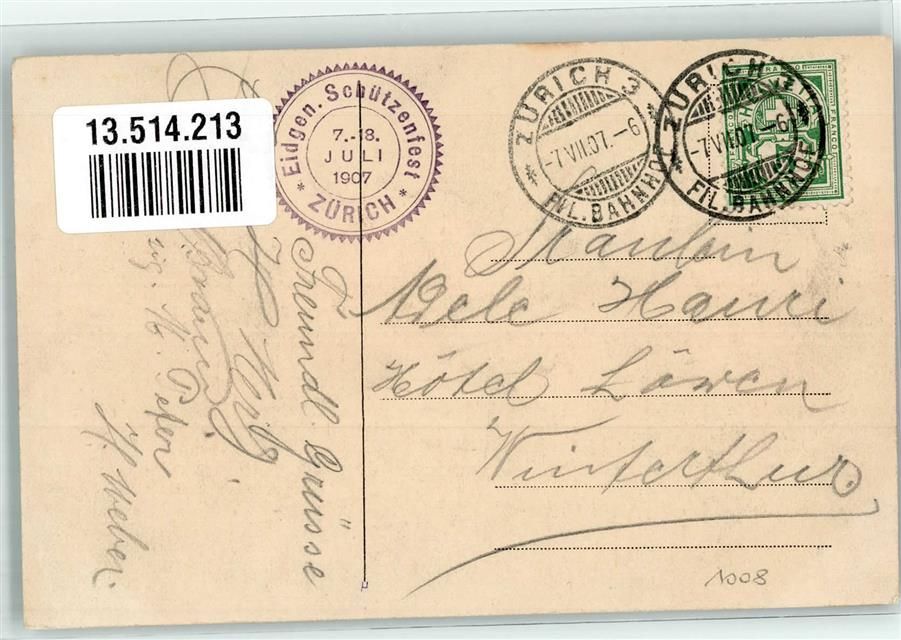 13.514.213
Eidgen. Schützenfest
7.-18.
JULI
1907
* ZÜRICH *
ZÜRICH 3
-7.VII.07.-6
FIL. BAHNHOF
ZÜRICH 3
-7.VII.07.-6
FIL. BAHNHOF
FRANCO
Fräulein
Adele Hauri
Hôtel Löwen
Winterthur
Freundl. Grüsse
Peter
H. Weber.
1008